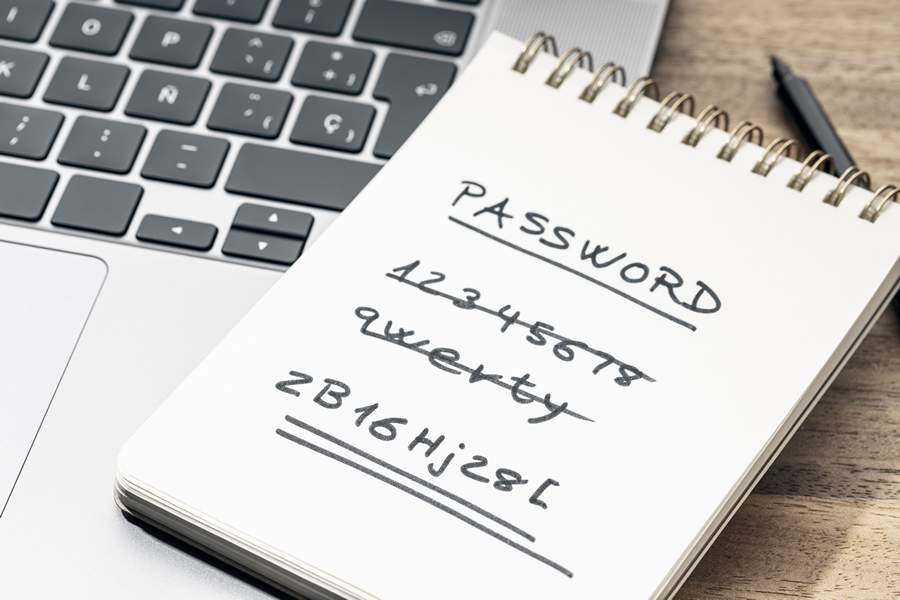 O P ^ * +
K L Ñ ¨ ´ Ç
PASSWORD
12345678
qwerty
2B16Hj28[